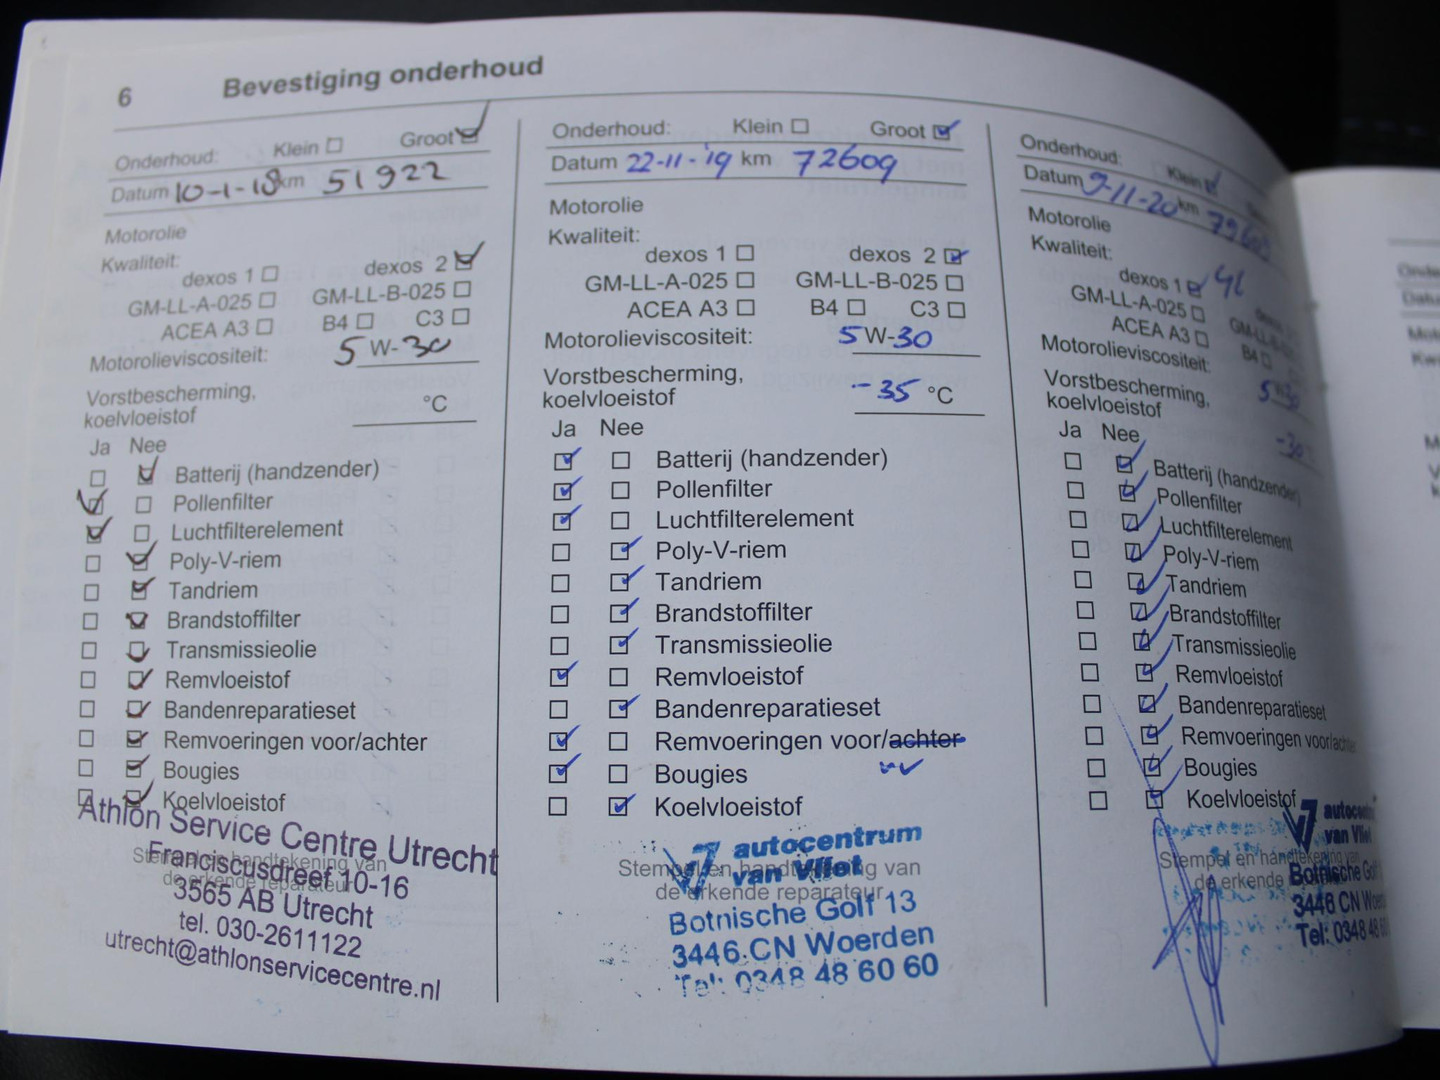 6 Bevestiging onderhoud
Onderhoud: Klein Groot
Datum 10-1-18 km 51922
Motorolie
Kwaliteit:
dexos 1 dexos 2
GM-LL-A-025 GM-LL-B-025
ACEA A3 B4 C3
Motorolieviscositeit: 5 W-30
Vorstbescherming,
koelvloeistof °C
Ja Nee
Batterij (handzender)
Pollenfilter
Luchtfilterelement
Poly-V-riem
Tandriem
Brandstoffilter
Transmissieolie
Remvloeistof
Bandenreparatieset
Remvoeringen voor/achter
Bougies
Koelvloeistof
Stempel en handtekening van
de erkende reparateur
Athlon Service Centre Utrecht
Franciscusdreef 10-16
3565 AB Utrecht
tel. 030-2611122
utrecht@athlonservicecentre.nl
Onderhoud: Klein Groot
Datum 22-11-'19 km 72609
Motorolie
Kwaliteit:
dexos 1 dexos 2
GM-LL-A-025 GM-LL-B-025
ACEA A3 B4 C3
Motorolieviscositeit: 5 W-30
Vorstbescherming,
koelvloeistof -35 °C
Ja Nee
Batterij (handzender)
Pollenfilter
Luchtfilterelement
Poly-V-riem
Tandriem
Brandstoffilter
Transmissieolie
Remvloeistof
Bandenreparatieset
Remvoeringen voor/achter
Bougies
Koelvloeistof
Stempel en handtekening van
de erkende reparateur
autocentrum
van Vliet
Botnische Golf 13
3446 CN Woerden
Tel: 0348 48 60 60
Onderhoud: Klein
Datum 9-11-20 km
Motorolie
Kwaliteit:
dexos 1 4L
GM-LL-A-025
ACEA A3 B4
Motorolieviscositeit: 5 W-30
Vorstbescherming,
koelvloeistof -30
Ja Nee
Batterij (handzender)
Pollenfilter
Luchtfilterelement
Poly-V-riem
Tandriem
Brandstoffilter
Transmissieolie
Remvloeistof
Bandenreparatieset
Remvoeringen voor/achter
Bougies
Koelvloeistof
Stempel en handtekening van
de erkende
van Vliet
Botnische Golf
3446 CN
Tel: 0348 48